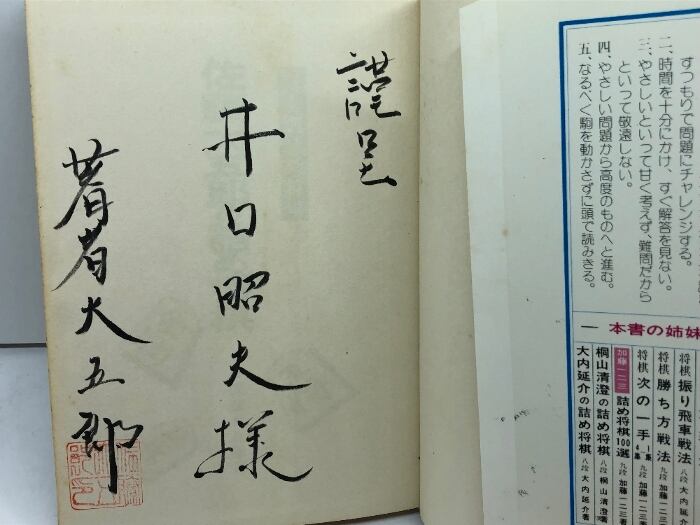 すつもりで問題にチャレンジする。
二、時間を十分にかけ、すぐ解答を見ない。
三、やさしいといって甘く考えず、難問だから
といって敬遠しない。
四、やさしい問題から高度のものへと進む。
五、なるべく駒を動かさずに頭で読みきる。
一 本書の姉妹
将棋 振り飛車戦法 八段 大内
将棋 勝ち方戦法 九段 加藤一二
将棋 次の一手 九段 加藤一二三
加藤一二三 詰め将棋100選 九段 加藤一二三
桐山清澄の詰め将棋 八段 桐山清澄
大内延介の詰め将棋 八段 大内延介著
謹呈
井口昭夫様
著者大五郎